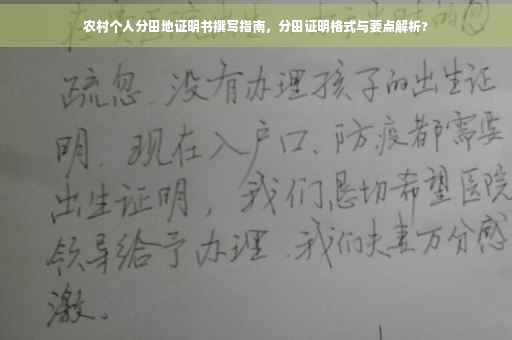 农村个人分田地证明书撰写指南，分田证明格式与要点解析?
疏忽、没有办理孩子的出生证
明．现在入户口、防疫都需要
出生证明，我们恳切希望医院
领导给予办理．我们夫妻万分感
激。